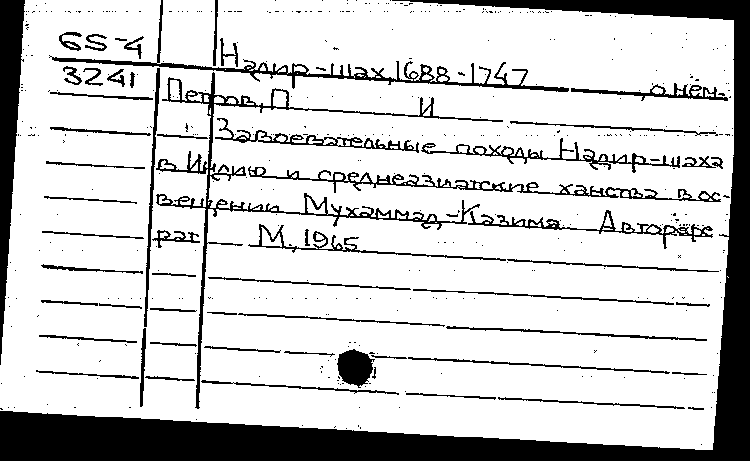 65-4 Надир-шах, 1688-1747, о нём.
3241 Петров, П И
Завоевательные походы Надир-шаха
в Индию и среднеазиатские ханства в ос-
вещении Мухаммад-Казима Автореф
рат М., 1965